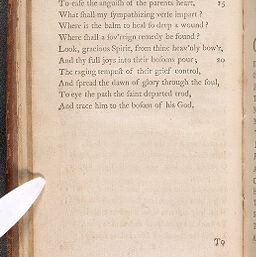 To ease the anguish of the parents heart, 15
What shall my sympathizing verse impart?
Where is the balm to heal so deep a wound?
Where shall a sov'reign remedy be found?
Look, gracious Spirit, from thine heav'nly bow'r,
And thy full joys into their bosoms pour; 20
The raging tempest of their grief control,
And spread the dawn of glory through the soul,
To eye the path the saint departed trod,
And trace him to the bosom of his God.
To